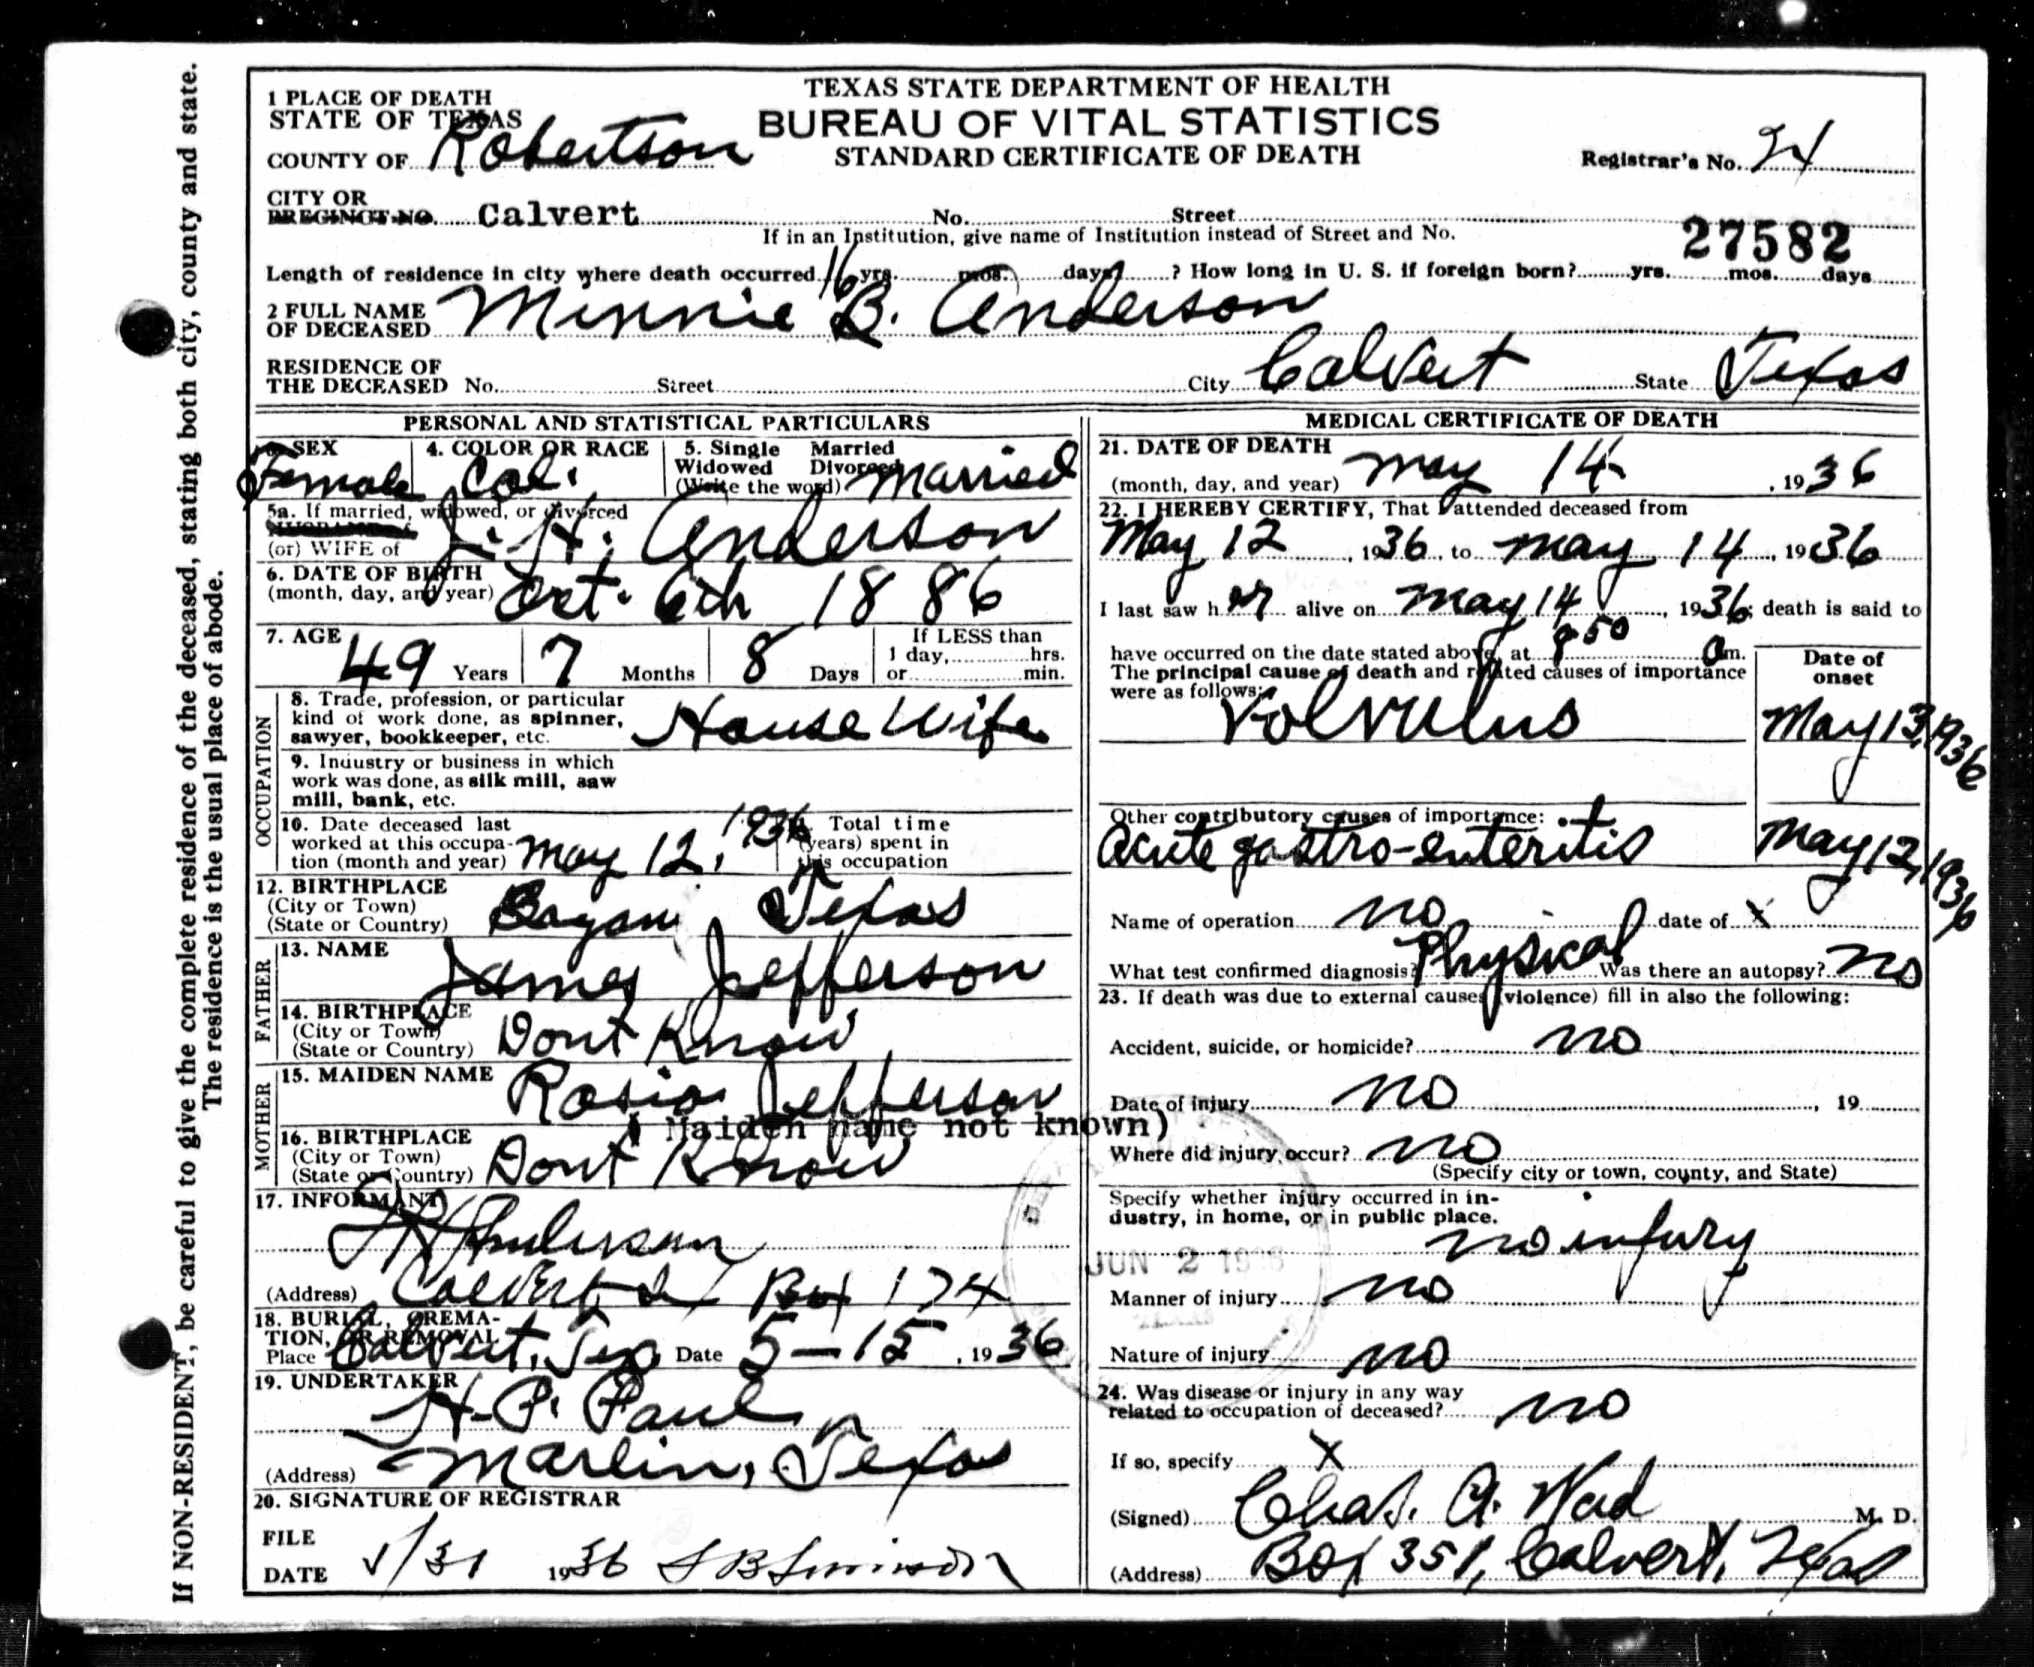 If NON-RESIDENT, be careful to give the complete residence of the deceased, stating both city, county and state.
The residence is the usual place of abode.
TEXAS STATE DEPARTMENT OF HEALTH
BUREAU OF VITAL STATISTICS
STANDARD CERTIFICATE OF DEATH
1 PLACE OF DEATH
STATE OF TEXAS
COUNTY OF Robertson
Registrar's No. 24
CITY OR
PRECINCT NO. Calvert No. Street
If in an Institution, give name of Institution instead of Street and No.
27582
Length of residence in city where death occurred 16 yrs. mos. days ? How long in U. S. if foreign born? yrs. mos. days
2 FULL NAME
OF DECEASED Minnie B. Anderson
RESIDENCE OF
THE DECEASED No. Street City Calvert State Texas
PERSONAL AND STATISTICAL PARTICULARS
3. SEX Female
4. COLOR OR RACE Col.
5. Single Married
Widowed Divorced
(Write the word) Married
5a. If married, widowed, or divorced
HUSBAND of
(or) WIFE of J. H. Anderson
6. DATE OF BIRTH
(month, day, and year) Oct. 6th 1886
7. AGE 49 Years 7 Months 8 Days
If LESS than
1 day, hrs.
or min.
OCCUPATION
8. Trade, profession, or particular
kind of work done, as spinner,
sawyer, bookkeeper, etc. House Wife
9. Industry or business in which
work was done, as silk mill, saw
mill, bank, etc.
10. Date deceased last
worked at this occupa-
tion (month and year) May 12, 1936
11. Total time
(years) spent in
this occupation
12. BIRTHPLACE
(City or Town)
(State or Country) Bryan Texas
FATHER
13. NAME James Jefferson
14. BIRTHPLACE
(City or Town)
(State or Country) Dont Know
MOTHER
15. MAIDEN NAME Rosia Jefferson
( Maiden name not known)
16. BIRTHPLACE
(City or Town)
(State or Country) Dont Know
17. INFORMANT
Anderson
(Address) Calvert Box 174
18. BURIAL, CREMA-
TION, OR REMOVAL
Place Calvert, Tex Date 5-15, 1936
19. UNDERTAKER
H. P. Paul
(Address) Marlin, Texas
20. SIGNATURE OF REGISTRAR
FILE
DATE 5/31 1936
MEDICAL CERTIFICATE OF DEATH
21. DATE OF DEATH
(month, day, and year) May 14, 1936
22. I HEREBY CERTIFY, That I attended deceased from
May 12, 1936, to May 14, 1936
I last saw her alive on May 14, 1936; death is said to
have occurred on the date stated above, at 8 50 a m.
The principal cause of death and related causes of importance
were as follows:
Date of
onset
Volvulus May 13, 1936
Other contributory causes of importance:
Acute gastro-enteritis May 12, 1936
Name of operation no date of x
What test confirmed diagnosis? Physical Was there an autopsy? no
23. If death was due to external causes (violence) fill in also the following:
Accident, suicide, or homicide? no
Date of injury no , 19
Where did injury occur? no
(Specify city or town, county, and State)
Specify whether injury occurred in in-
dustry, in home, or in public place.
no injury
JUN 2
Manner of injury no
Nature of injury no
24. Was disease or injury in any way
related to occupation of deceased? no
If so, specify X
(Signed) Chas. A. Ward M. D.
(Address) Box 351, Calvert, Texas